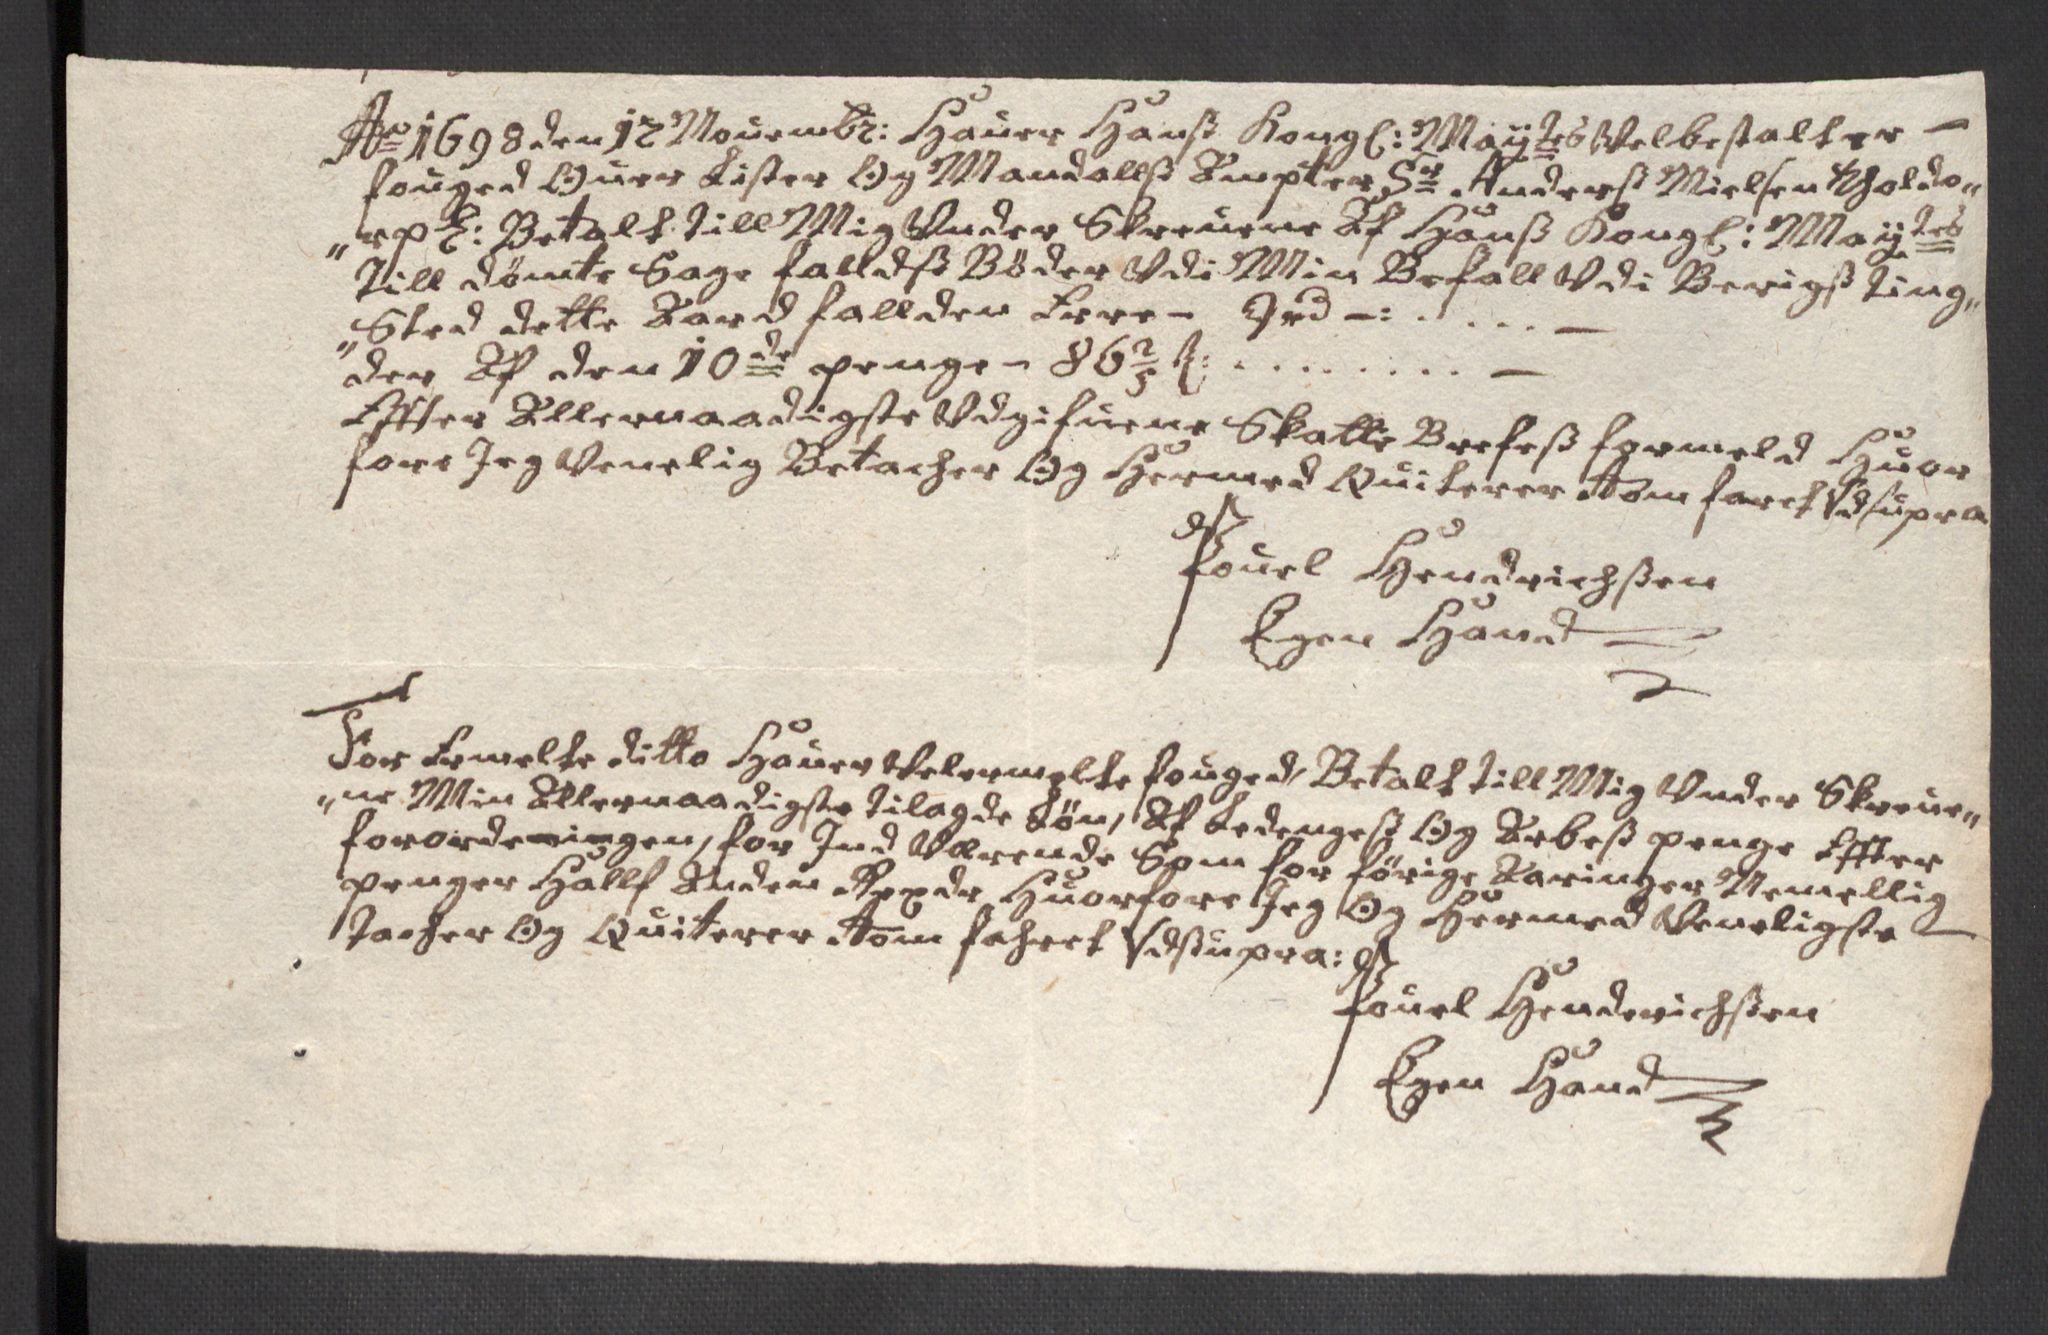 Ao 1698 den 12 Nouembr: Hauer Hans Kongl: Maytes Velbestalter
fouged Ouer Lister Og Mandallß Ampter Sr Anderß Nielsen
Betalt till Mig Vnder Skreuene Af Hanß Kongl: Maytes
till dömte Sage falldß Böder Vdi Min Befall Vdi Berigß ting„
„Sted dette Aard fallden
der Af den 10de penge - 86 2/5 ß:
Effter Allernaadigste Vdgifuene Skatte Brefeß formeld Huor
fore Jeg Venelig Betacher Og Hermed Quiterer Aom faret Vdsupra
Pouel Hendrichßen
Egen Hand
For ditto Hauer Velermelte fouged, Betalt till Mig Vnder Skreue„
„ne Min Allernaadigste tilagde Lön, Af Ledengeß Og Arbeß penge Effter
forordeningen, for Ind Værende Som for förige Aaringer Nemellig
penger Hallf Anden Huorfore Jeg Og Hermed Veneligste
tacher Og Quiterer Aom fahret Vdsupra:
Pouel Henderichßen
Egen Hand